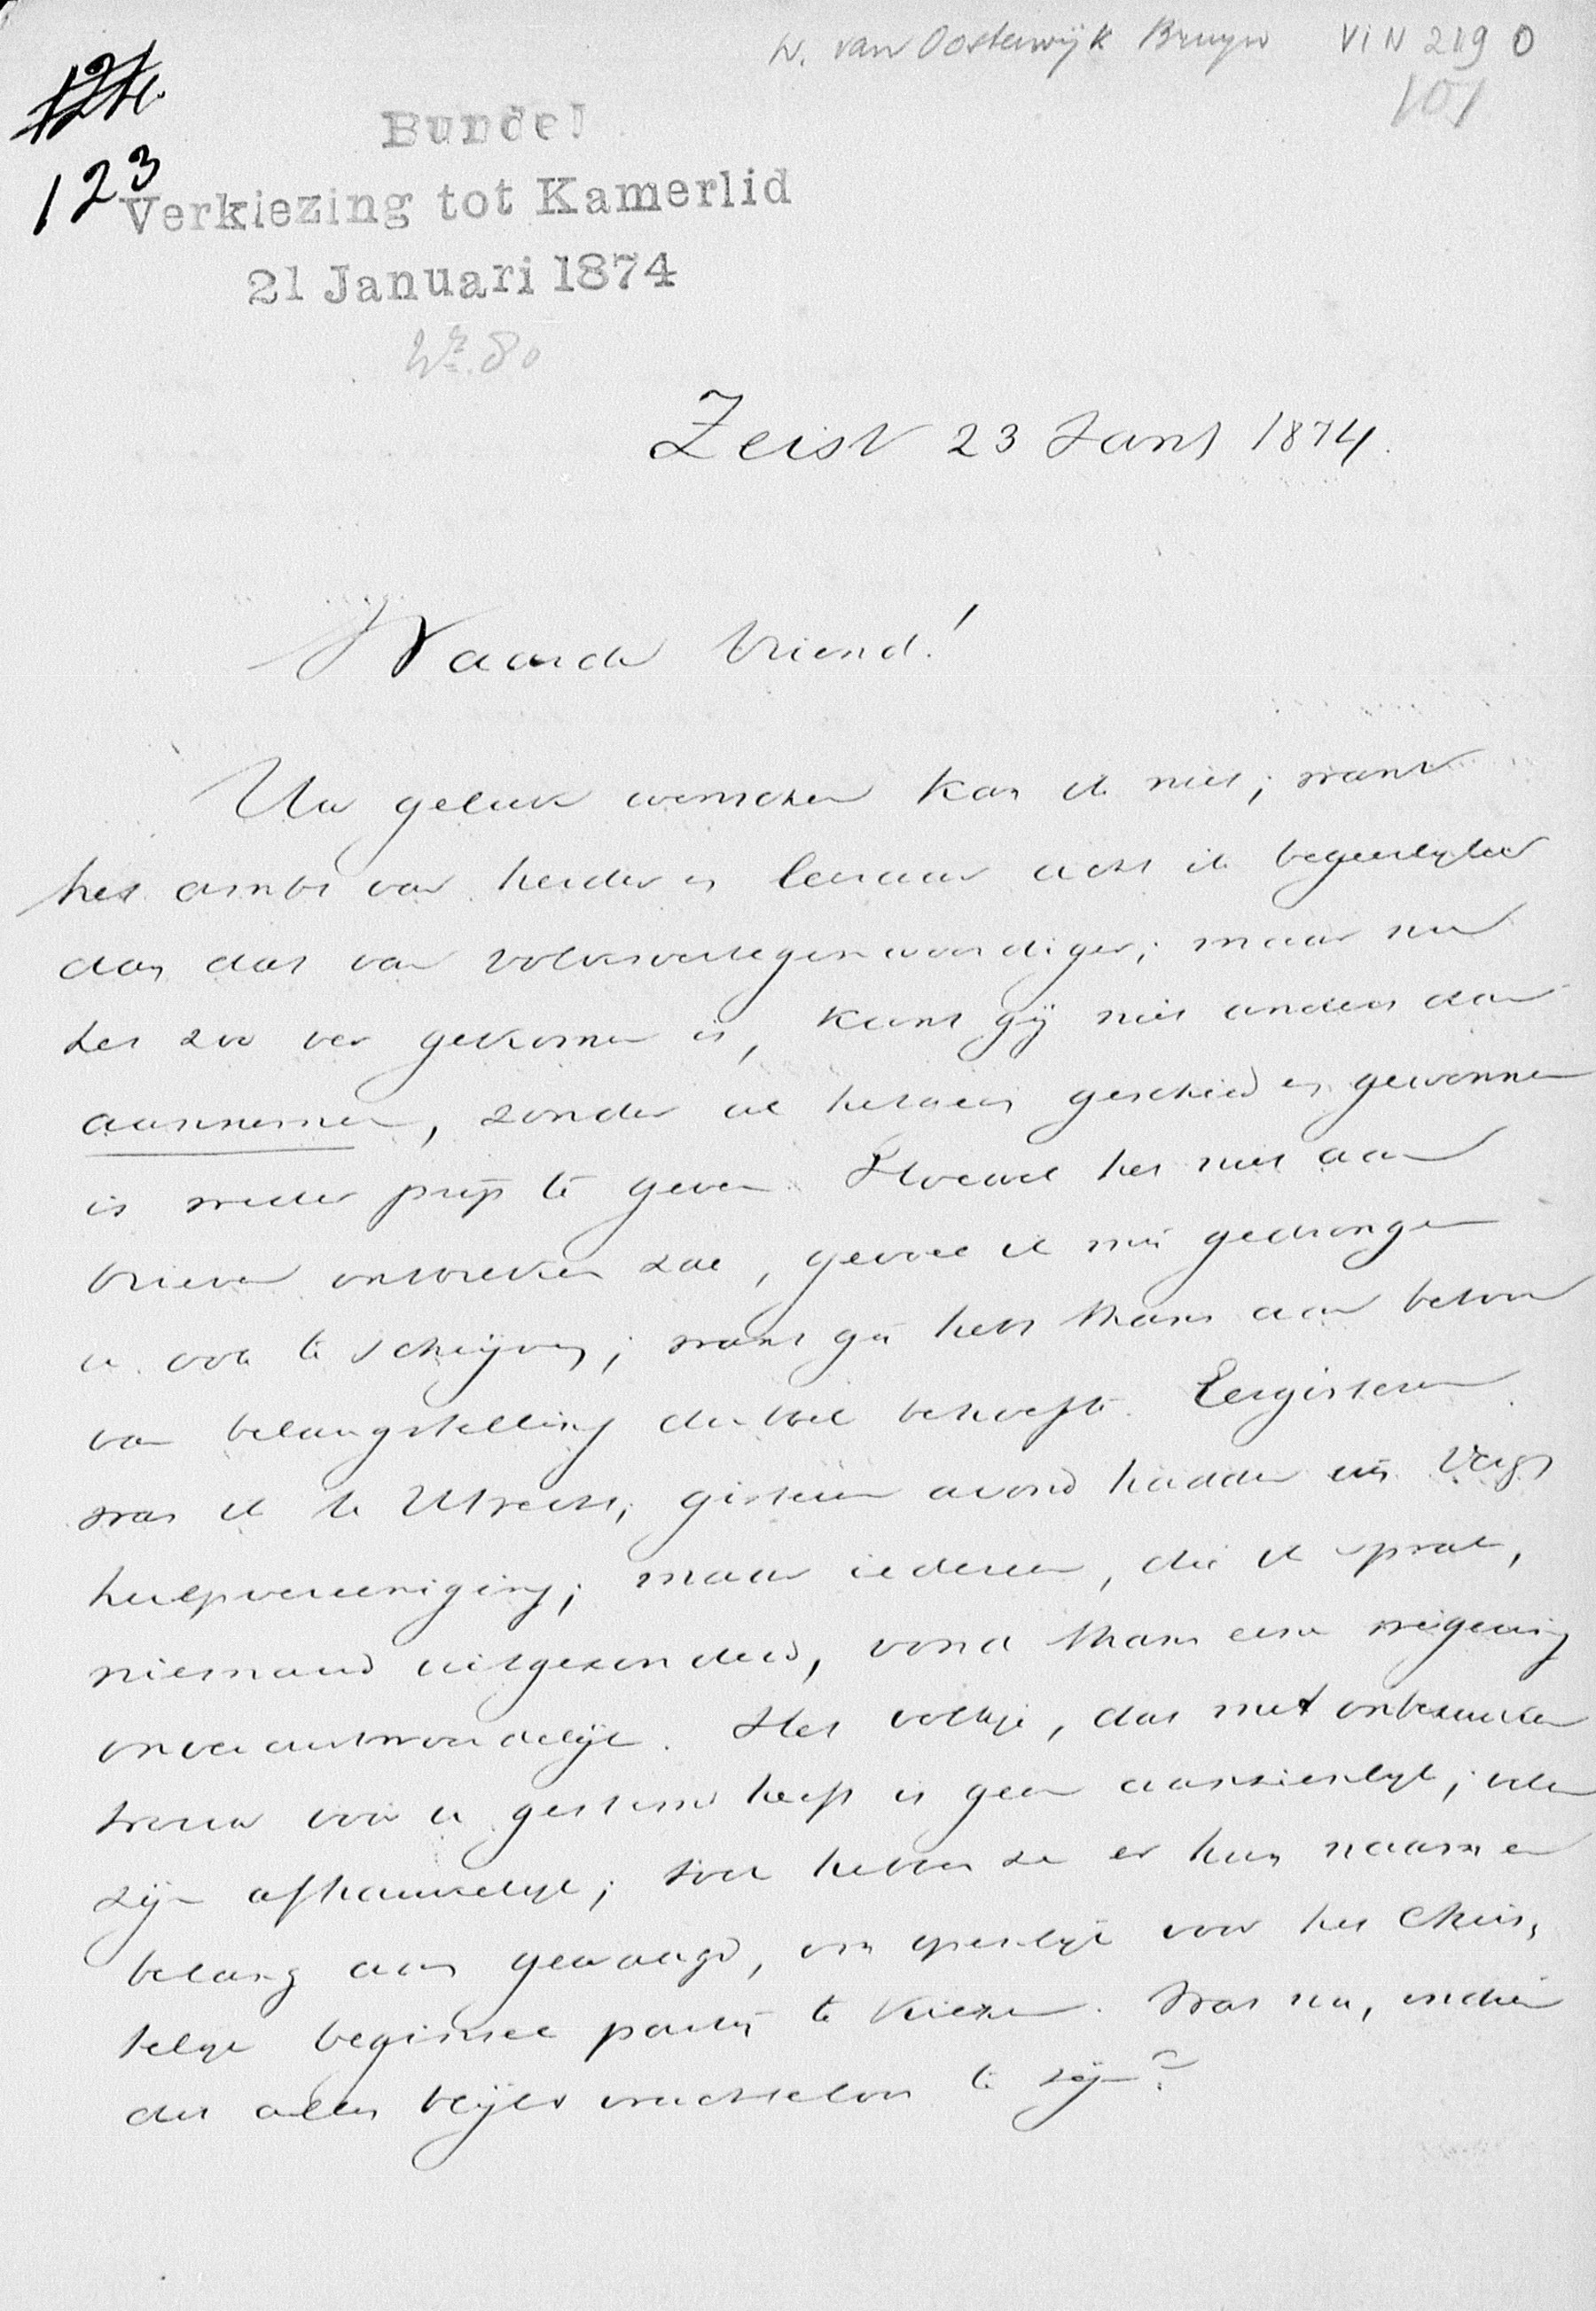 W. van Oosterwijk Bruyn VIN 219 0
101
124.
123
Bundel
Verkiezing tot Kamerlid
21 Januari 1874
No. 80
Zeist 23 Jan 1874.
Waarde Vriend!
Uw geluk wenschen kan ik niet; want
het ambt van herder en leeraar acht ik begeerlijker
dan dat van volksvertegenwoordiger; maar nu
het zoo ver gekomen is, kunt gij niet anders dan
aannemen, zonder al hetgeen geschied en gewonnen
is weder prijs te geven. Hoewel het niet aan
brieven ontbreken zal, gevoel ik mij gedrongen
u ook te schrijven; want gij hebt thans aan betoon
van belangstelling dubbel behoefte. Eergisteren
was ik te Utrecht; gisteren avond hadden wij Verg
hulpvereeniging; maar iedereen, die ik sprak,
niemand uitgezonderd, vond thans eene weigering
onverantwoordelijk. Het volkje, dat met onbezweken
trouw voor u gestemd heeft is geen aanzienlijk; velen
zijn afhankelijk; toch hebben ze er hun naam en
belang aan gewaagd, om openlijk voor het Chris,
telijk beginsel partij te kiezen. Wat nu, indien
dit alles blijkt vruchteloos te zijn?